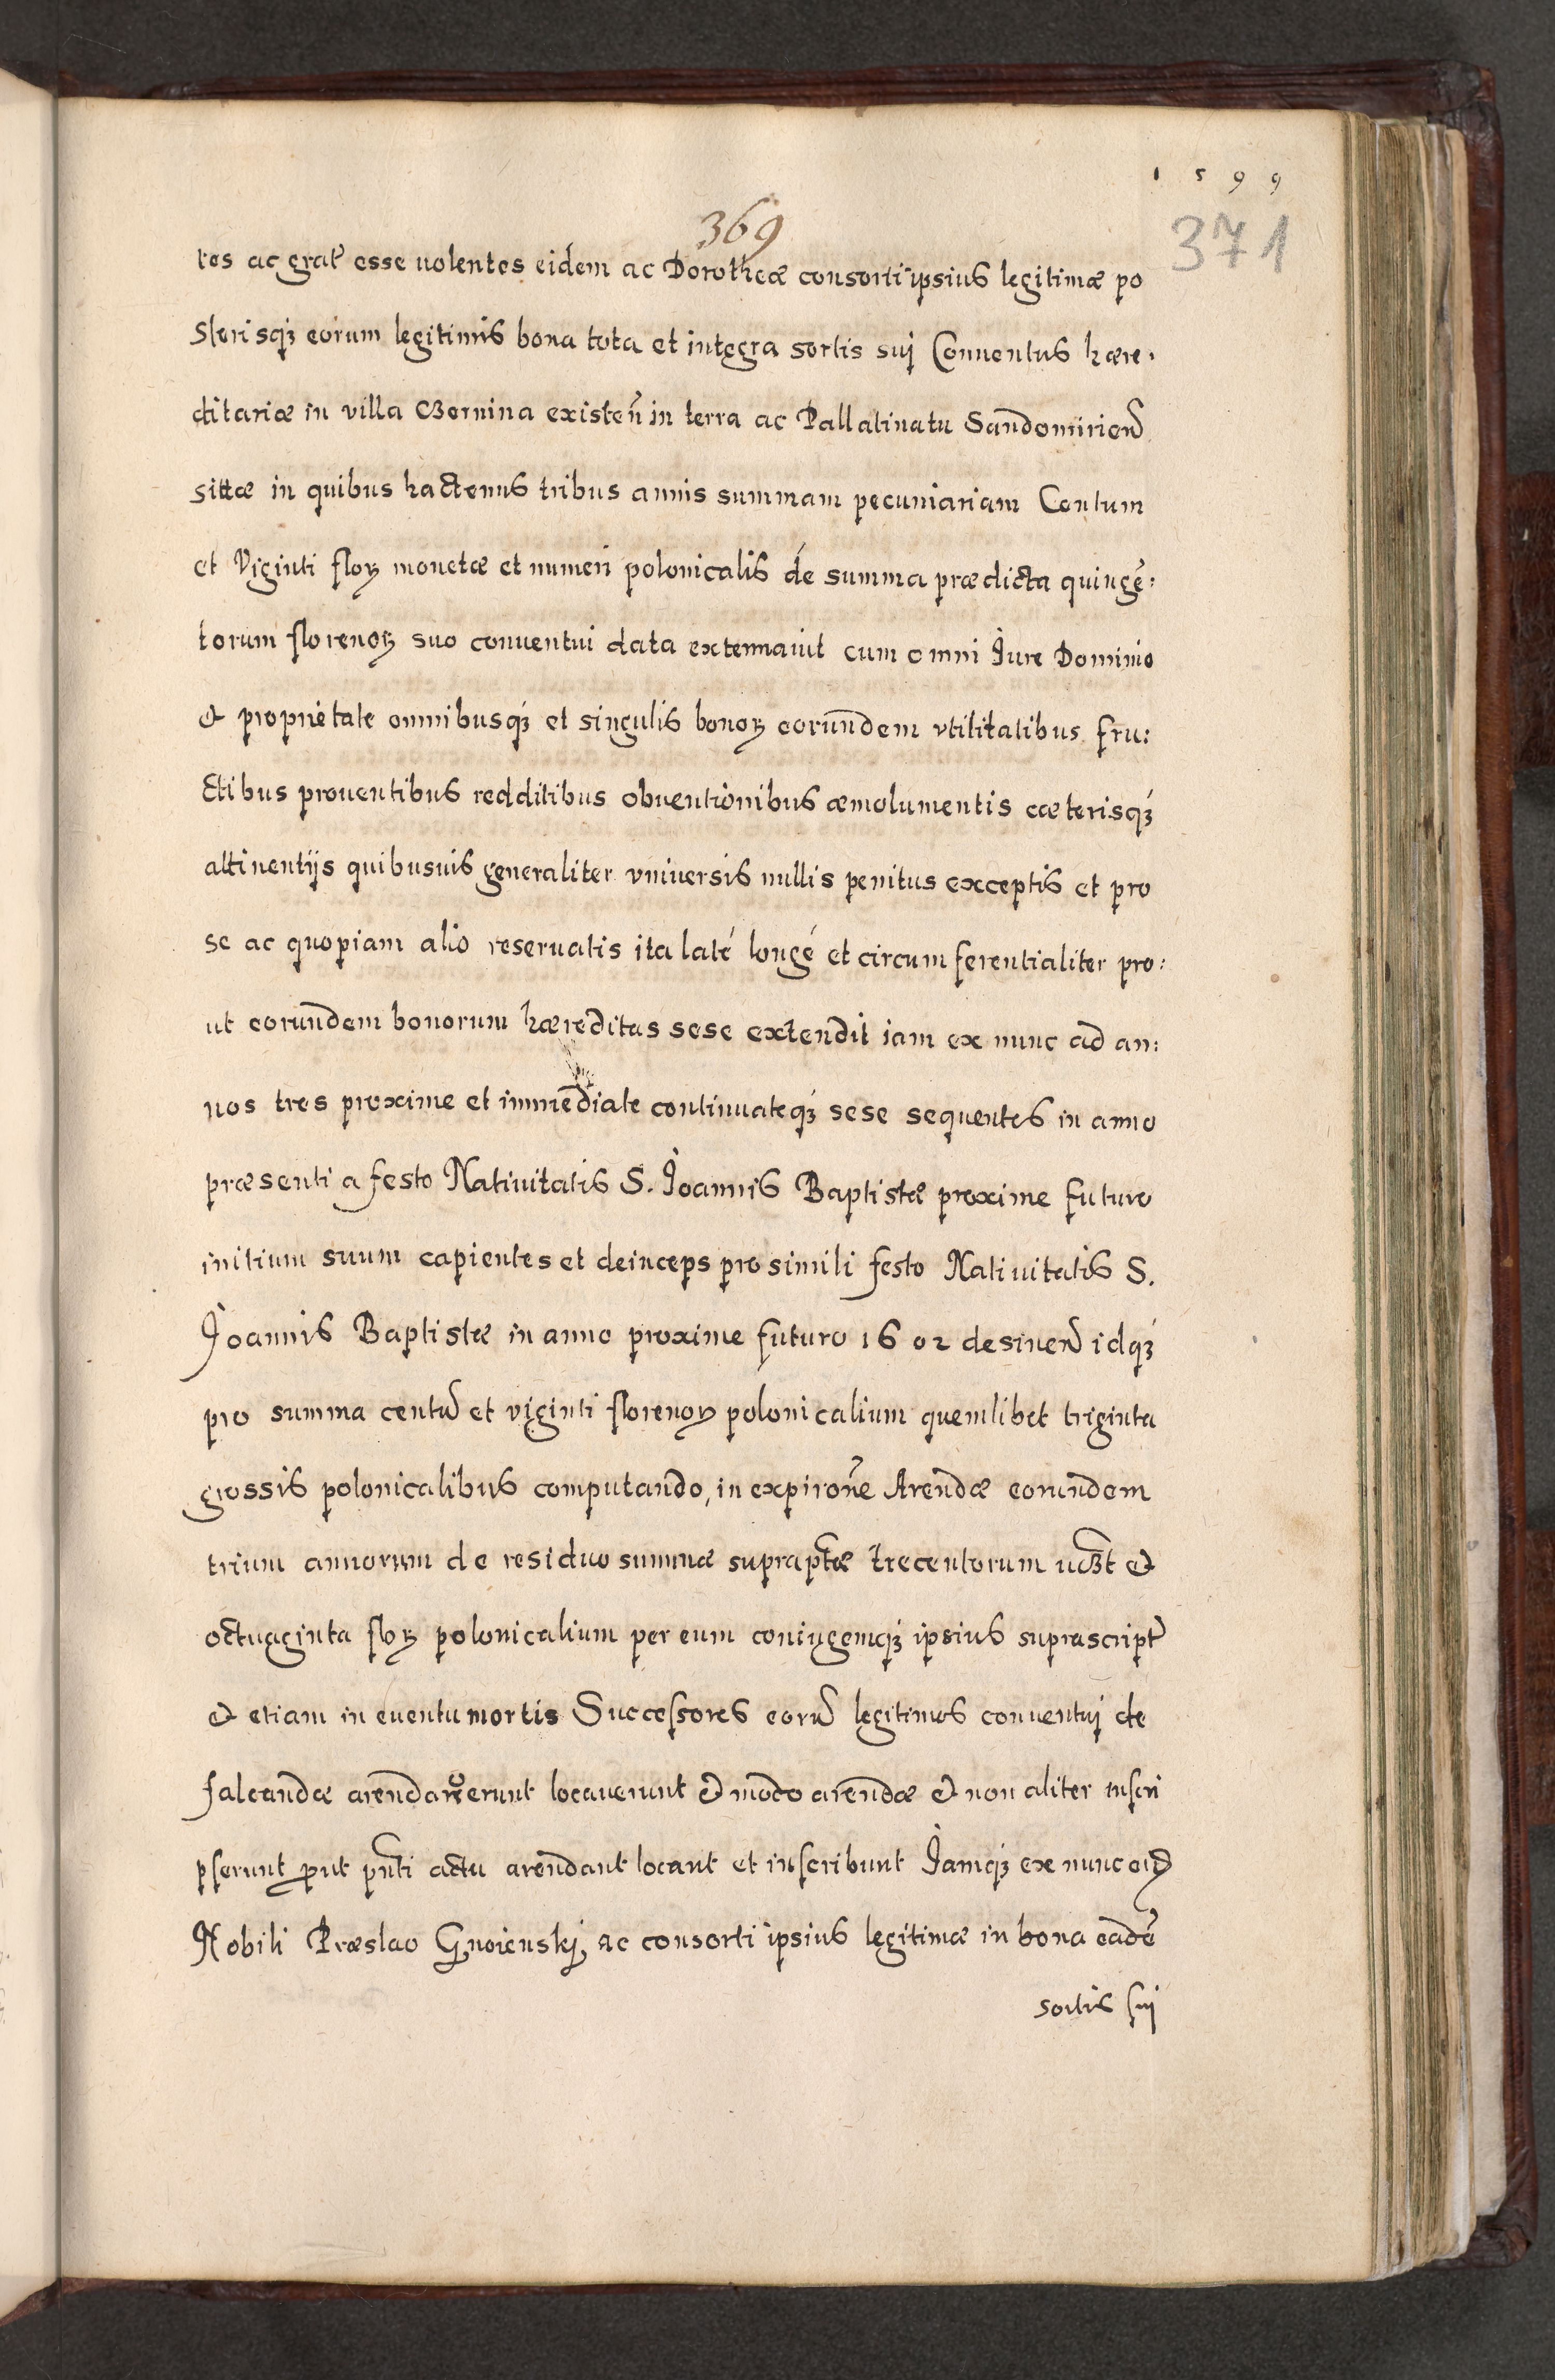 1599
369
371
tes ac grat̃ esse uolentes eidem ac Dorotheæ consorti ipsius legitimæ po
sterisqꝫ eorum legitimis bona tota et integra sortis suj Conuentus hære.
ditariæ in villa Czernina existeñ in terra ac Pallatinatu Sandomirien̄
sittæ in quibus hactenus tribus annis summam pecuniariam Centum
et Viginti floꝝ monetæ et numeri polonicalis dé summa prædicta quingē:
torum florenoꝝ suo conuentui data extenuauit cum omni Jure Dominio
et proprietate omnibusqꝫ et singulis bonoꝝ eorundem vtilitatibus fru:
ctibus prouentibus redditibus obuentionibus æmolumentis cæterisqꝫ
attinentijs quibusuis generaliter vniuersis nullis penitus exceptis et pro
se ac quopiam alio reseruatis ita laté longé et circumferentialiter pro:
ut eorundem bonorum hæreditas sese extendit iam ex nunc ad an:
nos tres proxime et immediate continuateqꝫ sese sequentes in anno
præsenti a festo Natiuitatis S. Joannis Baptistæ proxime futuro
initium suum capientes et deinceps pro simili festo Natiuitatis S.
Joannis Baptistæ in anno proxime futuro 1602 desinen̄ idqꝫ
pro summa centū et viginti florenoꝝ polonicalium quemlibet triginta
grossis polonicalibus computando, in expirōne Arendæ eorundem
trium annorum de residuo summæ supraptæ trecentorum uczt et
octuaginta floꝝ polonicalium per eum coniugemqꝫ ipsius suprascript̄
et etiam in euentu mortis Successores eorū legitimos conuentuj de
falcandæ arendauerunt locauerunt et modo arendæ et non aliter inscri
pserunt ꝓut pn̄ti actu arendant locant et inscribunt Jamqꝫ ex nunc eid̄
Nobili Præslao Gnoienskj ac consorti ipsius legitimæ in bona eadē
sortis suj